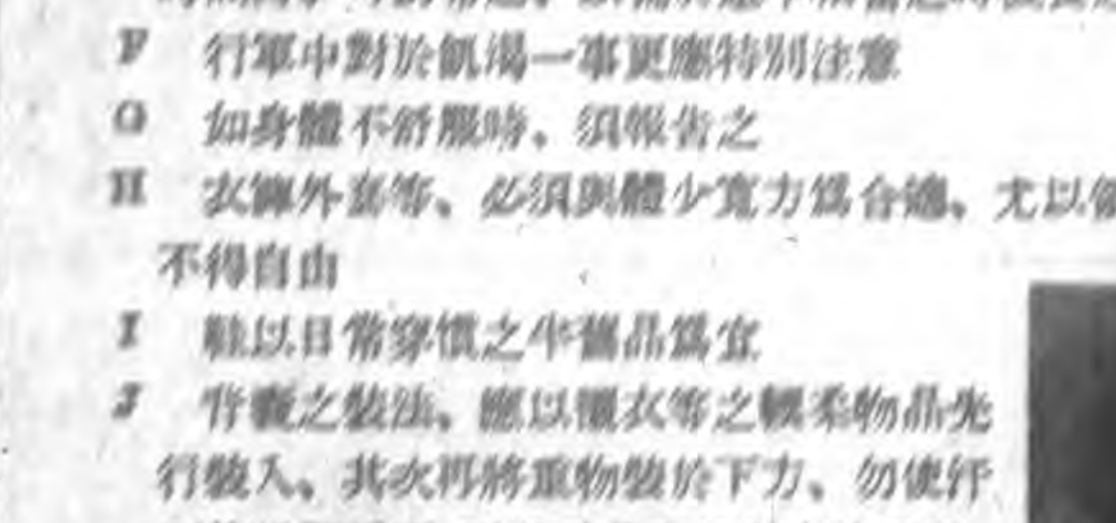 F 行軍中對於飢渴一事更應特別注意
G 如身體不舒服時、須報告之
H 衣褲外套等、必須與體少寬方爲合適、尤以
不得自由
I 鞋以日常穿慣之半舊品爲宜
J 背囊之裝法、應以襯衣等之輭柔物品先
行裝入、其次再將重物裝於下方、勿使